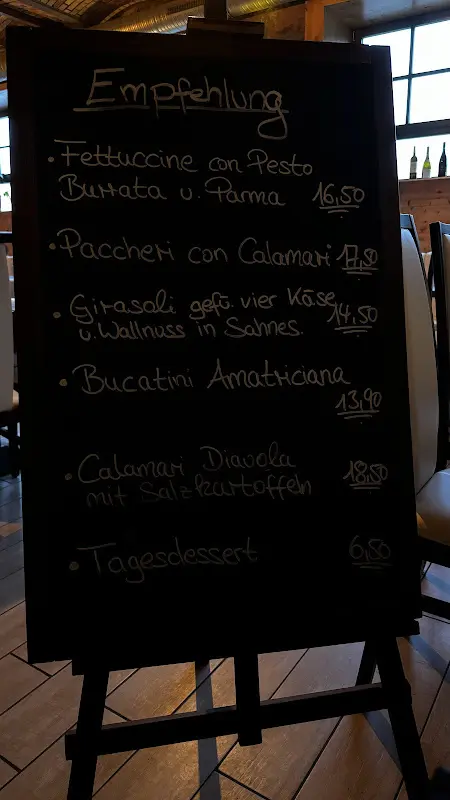 Empfehlung
• Fettuccine con Pesto
Burrata u. Parma 16,50
• Paccheri con Calamari 17,50
• Girasoli gefü. vier Käse
u. Wallnuss in Sahnes. 14,50
• Bucatini Amatriciana
13,90
• Calamari Diavola
mit Salzkartoffeln 18,50
• Tagesdessert 6,50